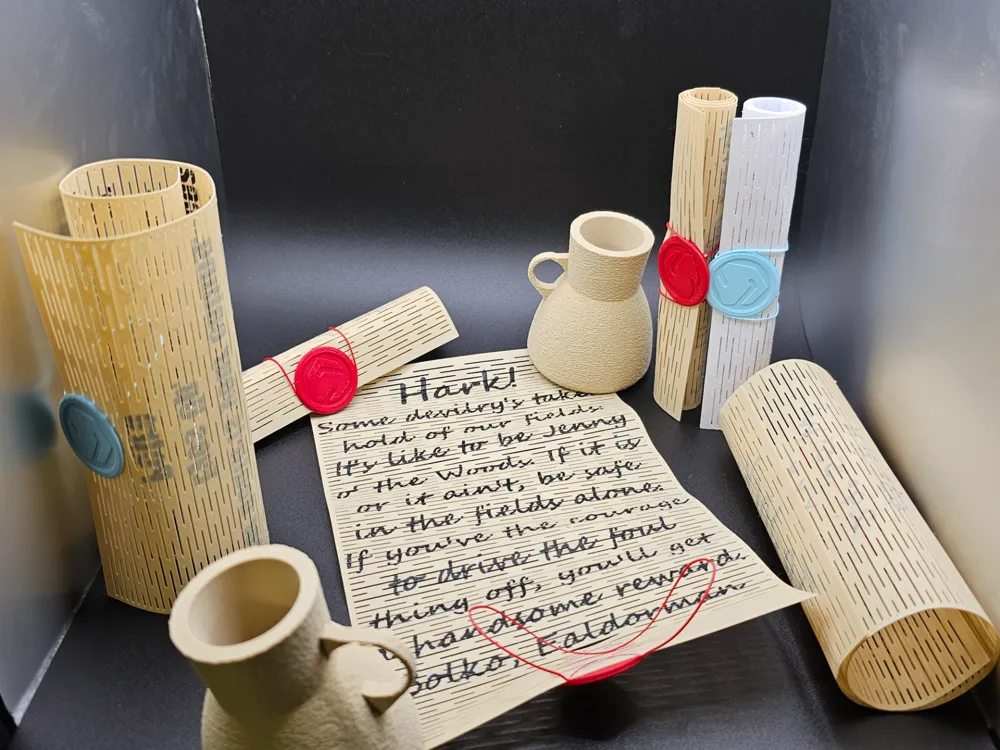 Hark!
Some devilry's take
hold of our fields.
It's like to be Jenny
o the Woods. If it is
or it ain't, be safe
in the fields alone.
If you've the courage
to drive the foul
thing off, you'll get
handsome reward.
Bolko, Ealdorman.